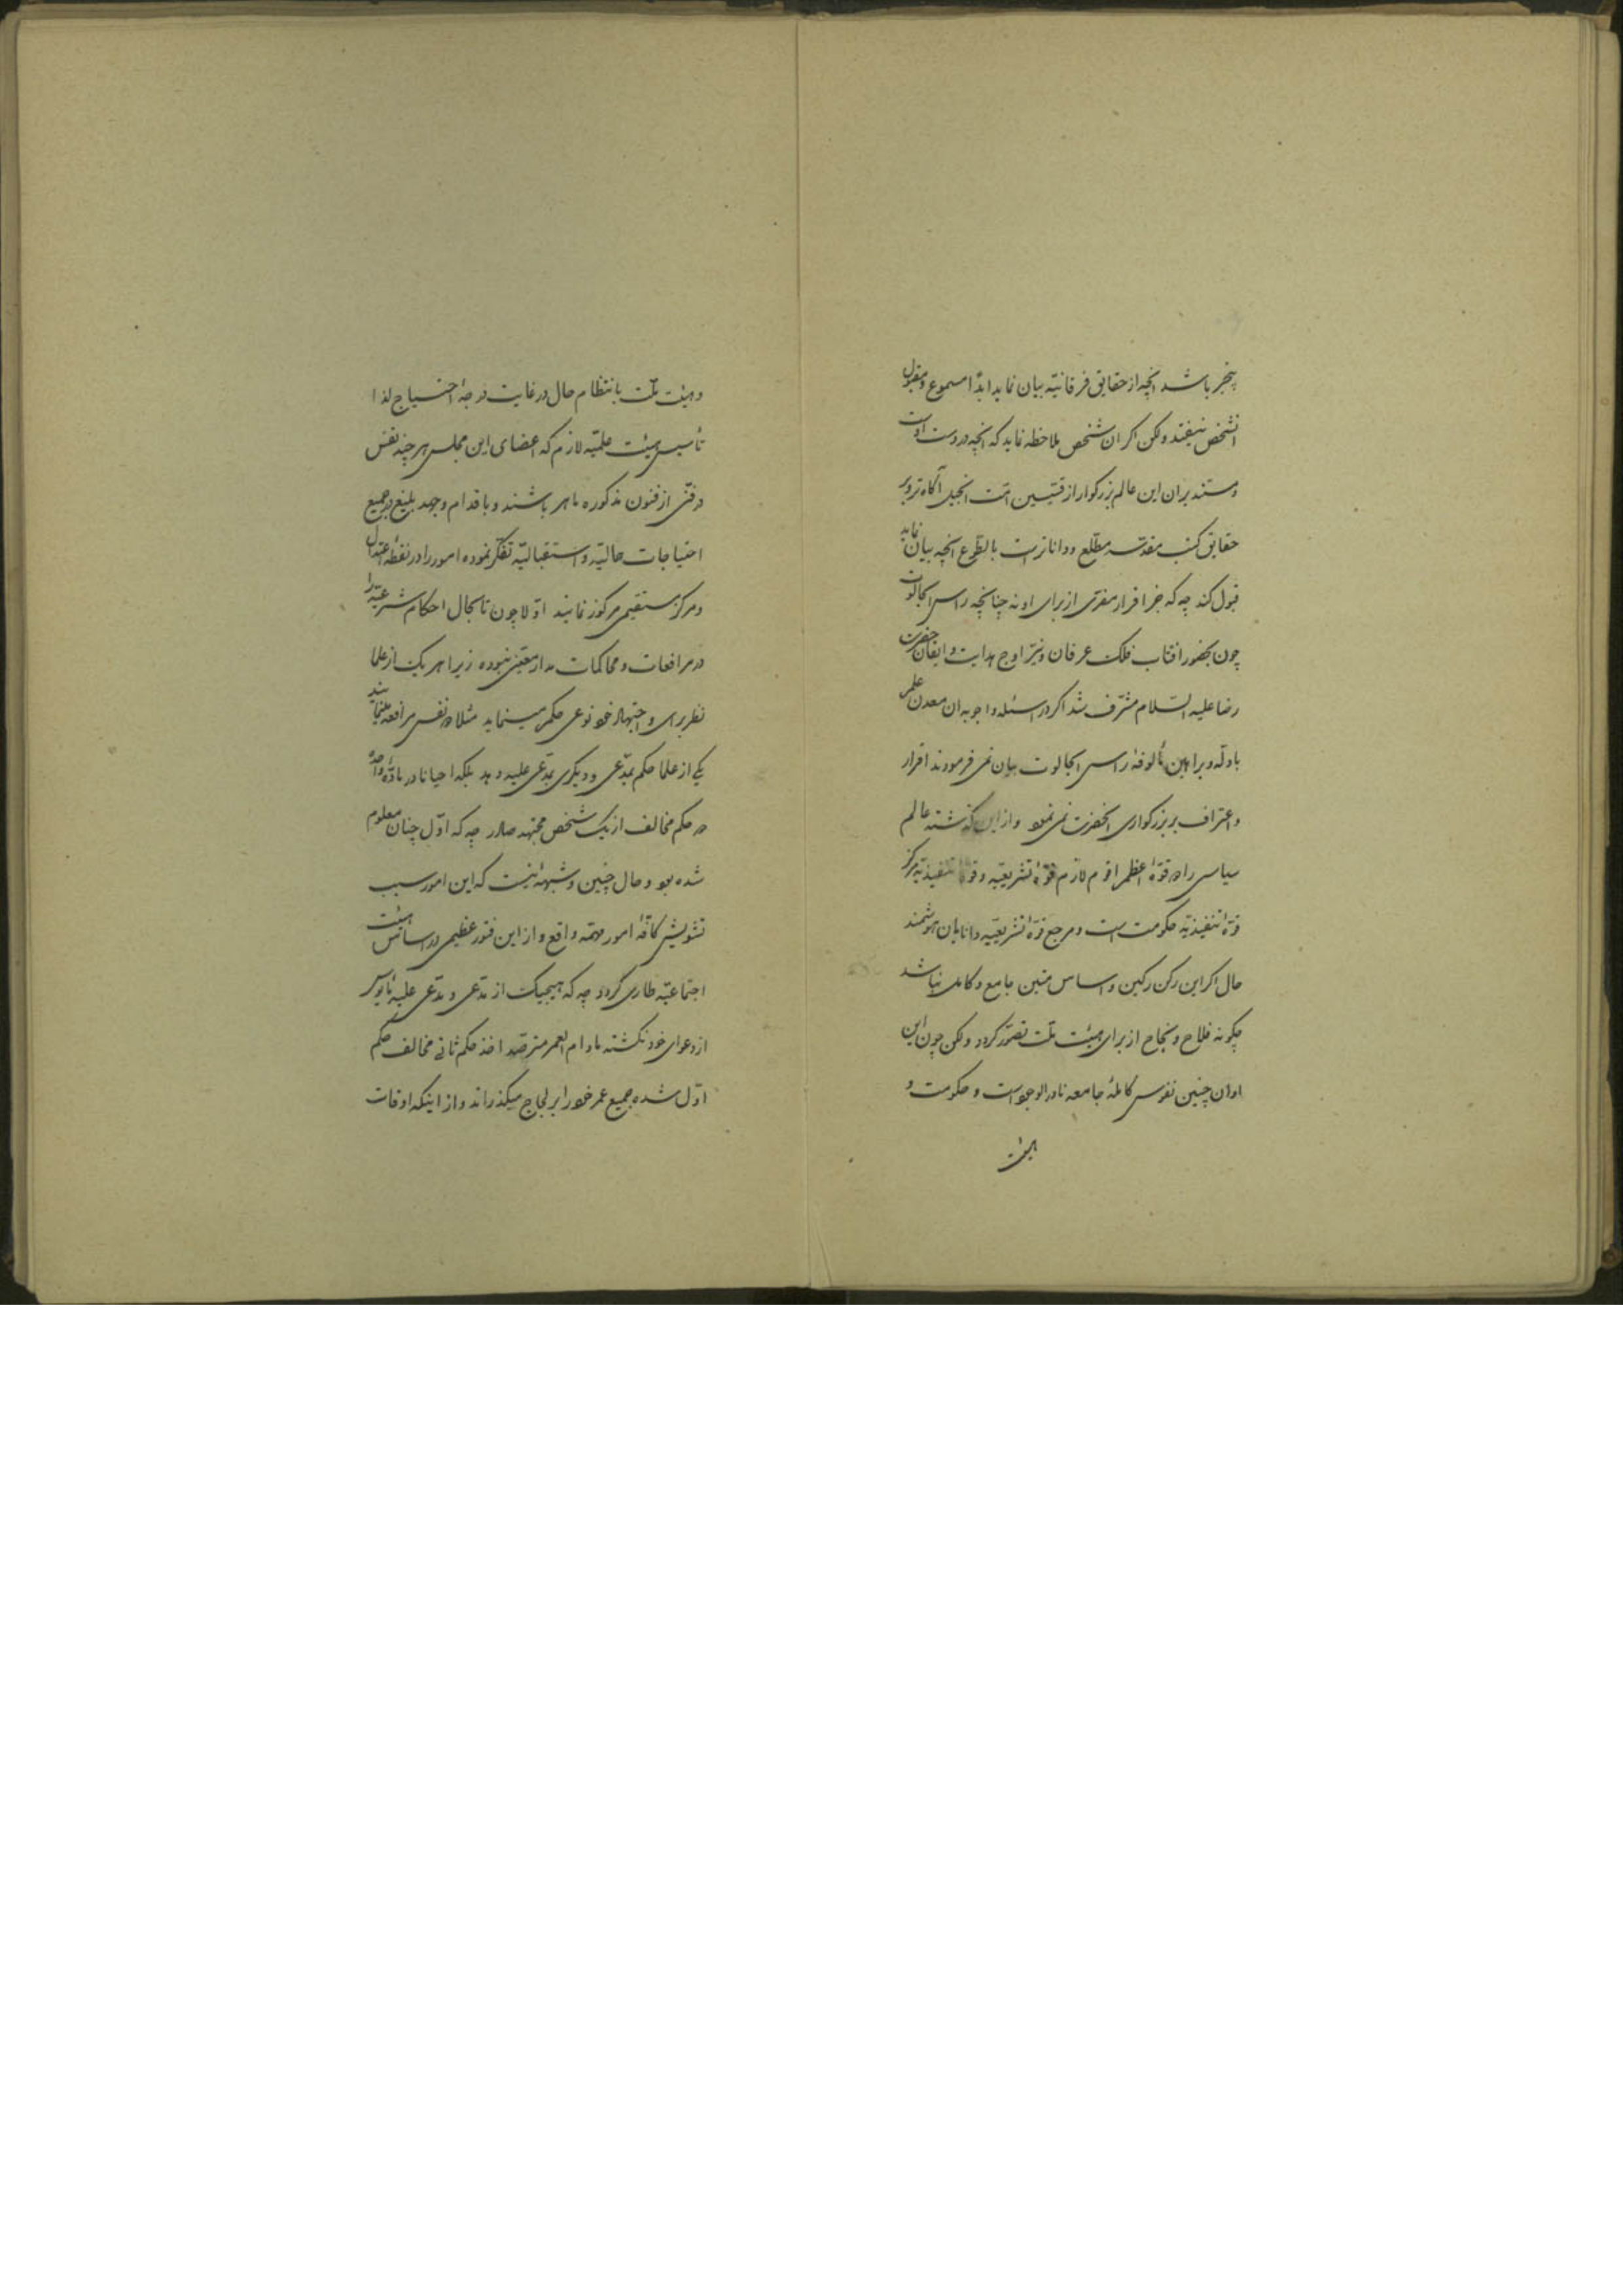 بیخبر باشد آنچه از حقایق فرقانیّه بیان نماید ابدًا مسموع و مقبول
انشخص نیفتد ولکن اکر ان شخص ملاحظه نماید که آنچه در دست اوست
و مستند بران این عالم بزرکوار از قسّیسین امّت انجیل آکاه‌تر و بر
حقایق کتب مقدّسه مطّلع و داناتر است بالطّوع آنچه بیان نماید
قبول کند چه که جز اقرار مفرّی از برای او نه چنانچه راس الجالوت
چون بحضور افتاب فلک عرفان و نیّر اوج هدایت و ایقان حضرت
رضا علیه السّلام مشرّف شد اکر در اسئله و اجوبه ان معدن علم
بادلّه و براهین مألوفهٔ راس الجالوت بیان نمی فرمودند اقرار
و اعتراف بر بزرکواری انحضرت نمی نمود و از این کذشته عالم
سیاسی را دو قوّهٔ اعظم اقوم لازم قوّهٔ تشریعیّه و قوّهٔ تنفیذیّه مرکز
قوّهٔ تنفیذیّه حکومت است و مرجع قوّهٔ تشریعیّه دانایان هوشمند
حال اکر این رکن رکین و اساس متین جامع و کامل نباشد
چکونه فلاح و نجاح از برای هیئت ملّت تصوّر کردد ولکن چون این
اوان چنین نفوس کاملهٔ جامعه نادر الوجود است و حکومت و
هیئت
و هیئت ملّت بانتظام حال در غایت درجهٔ احتیاج لذا
تأسیس هیئت علمیّه لازم که اعضای این مجلس هر چند نفس
در فنّی از فنون مذکوره ماهر باشند و باقدام و جهد بلیغ در جمیع
احتیاجات حالیّه و استقبالیّه تفکّر نموده امور را در نقطهٔ اعتدال
و مرکز مستقیمی مرکوز نمایند اوّلا چون تا بحال احکام شرعیّه را
در مرافعات و محاکمات مدار معیّنی نبوده زیرا هر یک از علما
نظر برای و اجتهاد خود نوعی حکم مینماید مثلا دو نفس مرافعه مینمایند
یکی از علما حکم بمدّعی و دیکری بمدّعی علیه دهد بلکه احیانا در مادّهٔ واحده
دو حکم مخالف از یک شخص مجتهد صادر چه که اوّل چنان معلوم
شده بود و حال چنین و شبهه‌ئی نیست که این امور سبب
تشویش کافّهٔ امور مهمّه واقع و از این فتور عظیمی در اساس هیئت
اجتماعیّه طاری کردد چه که هیچیک از مدّعی و مدّعی علیه مأیوس
از دعوای خود نکشته مادام العمر مترصّد اخذ حکم ثانی مخالف حکم
اوّل شده جمیع عمر خود را بر لجاج میکذراند و از اینکه اوقات